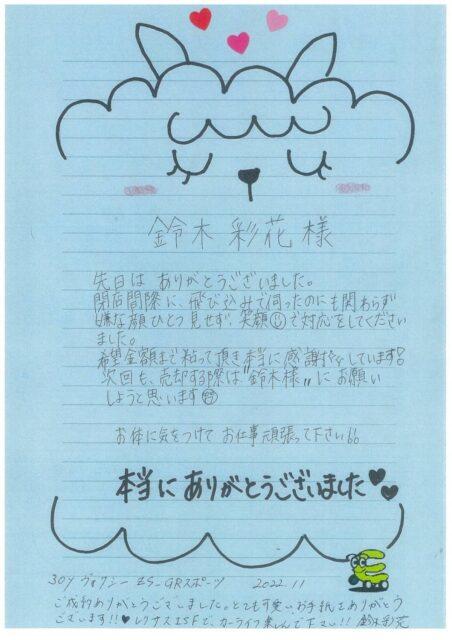 鈴木 彩花 様
先日は ありがとうございました。
閉店間際に、飛び込みで伺ったのにも関わらず
嫌な顔ひとつ見せず、笑顔で対応をしてください
ました。
希望金額まで粘って頂き本当に感謝しています!
次回も、売却する際は"鈴木様"にお願い
しようと思います
お体に気をつけて お仕事頑張って下さい
本当にありがとうございました
30y ヴォクシー ZS-GRスポーツ 2022.11
ご成約ありがとうございました。とても可愛いお手紙をありがとう
ございます!!レクサスISFで、カーライフ楽しんで下さい!! 鈴木彩花